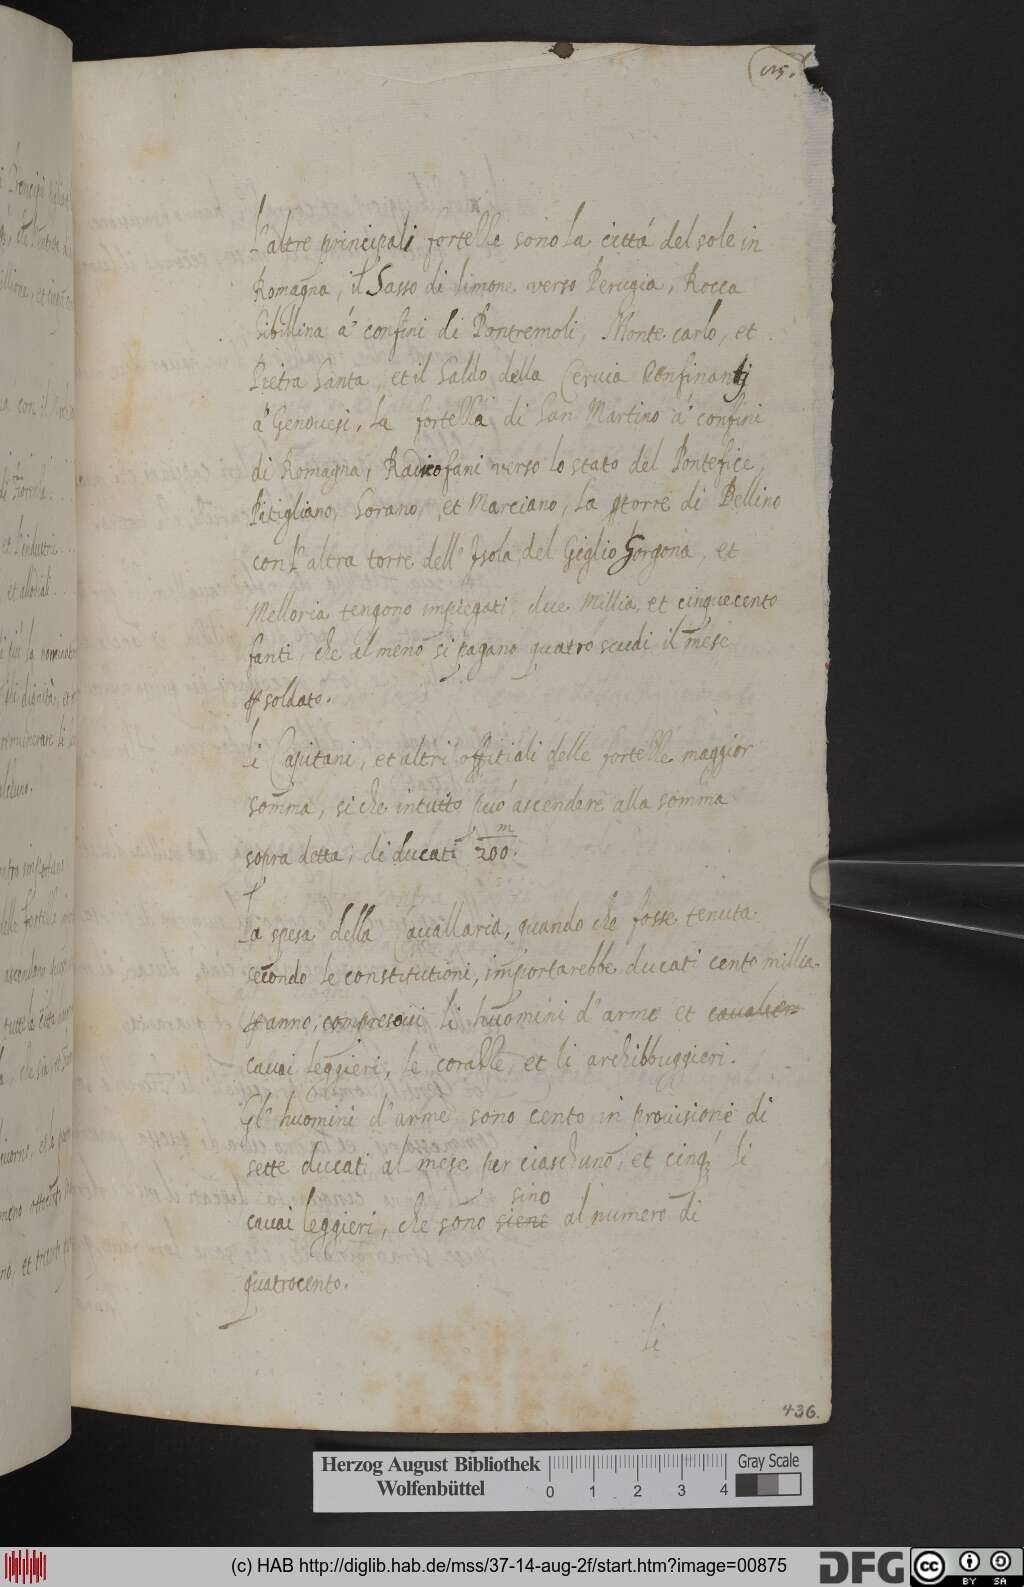 L'altre principali fortezze sono la cittá del sole in
Romagna, il Sasso di simone verso Perugia, Rocca
Sibillina á confini di Pontremoli, Monte carlo, et
Pietra Santa, et il Saldo della Ceruia Confinanti
á Genouesi, la fortezza di San Martino á confini
di Romagna, Radicofani verso lo stato del Pontefice,
Pitigliano, Sorano, et Marciano, La torre di Bellino
con l'altra torre dell'Isola del Giglio Gorgona, et
Melloria tengono impiegati due millia, et cinquecento
fanti, che al meno si pagano quatro scudi il mese
soldato.
Li Capitani, et altri offitiali delle fortezze maggior
somma, si che intutto può ascendere alla somma
sopra detta, di ducati 200 m.
La spesa della Cauallaria, quando che fosse tenuta
secondo le constitutioni, importarebbe ducati cento millia
anno, compresoui li huomini d'arme et caualier
cauai leggieri, le corazze, et li archibbuggieri.
Gl'huomini d'arme sono cento in prouisione di
sette ducati al mese per ciaschuno, et cinq li
sino
cauai leggieri, che sono siene al numero di
quatrocento.
li
436.
Herzog August Bibliothek
Wolfenbüttel
0 1 2 3 4
Gray Scale
(c) HAB http://diglib.hab.de/mss/37-14-aug-2f/start.htm?image=00875
DFG
cc BY SA